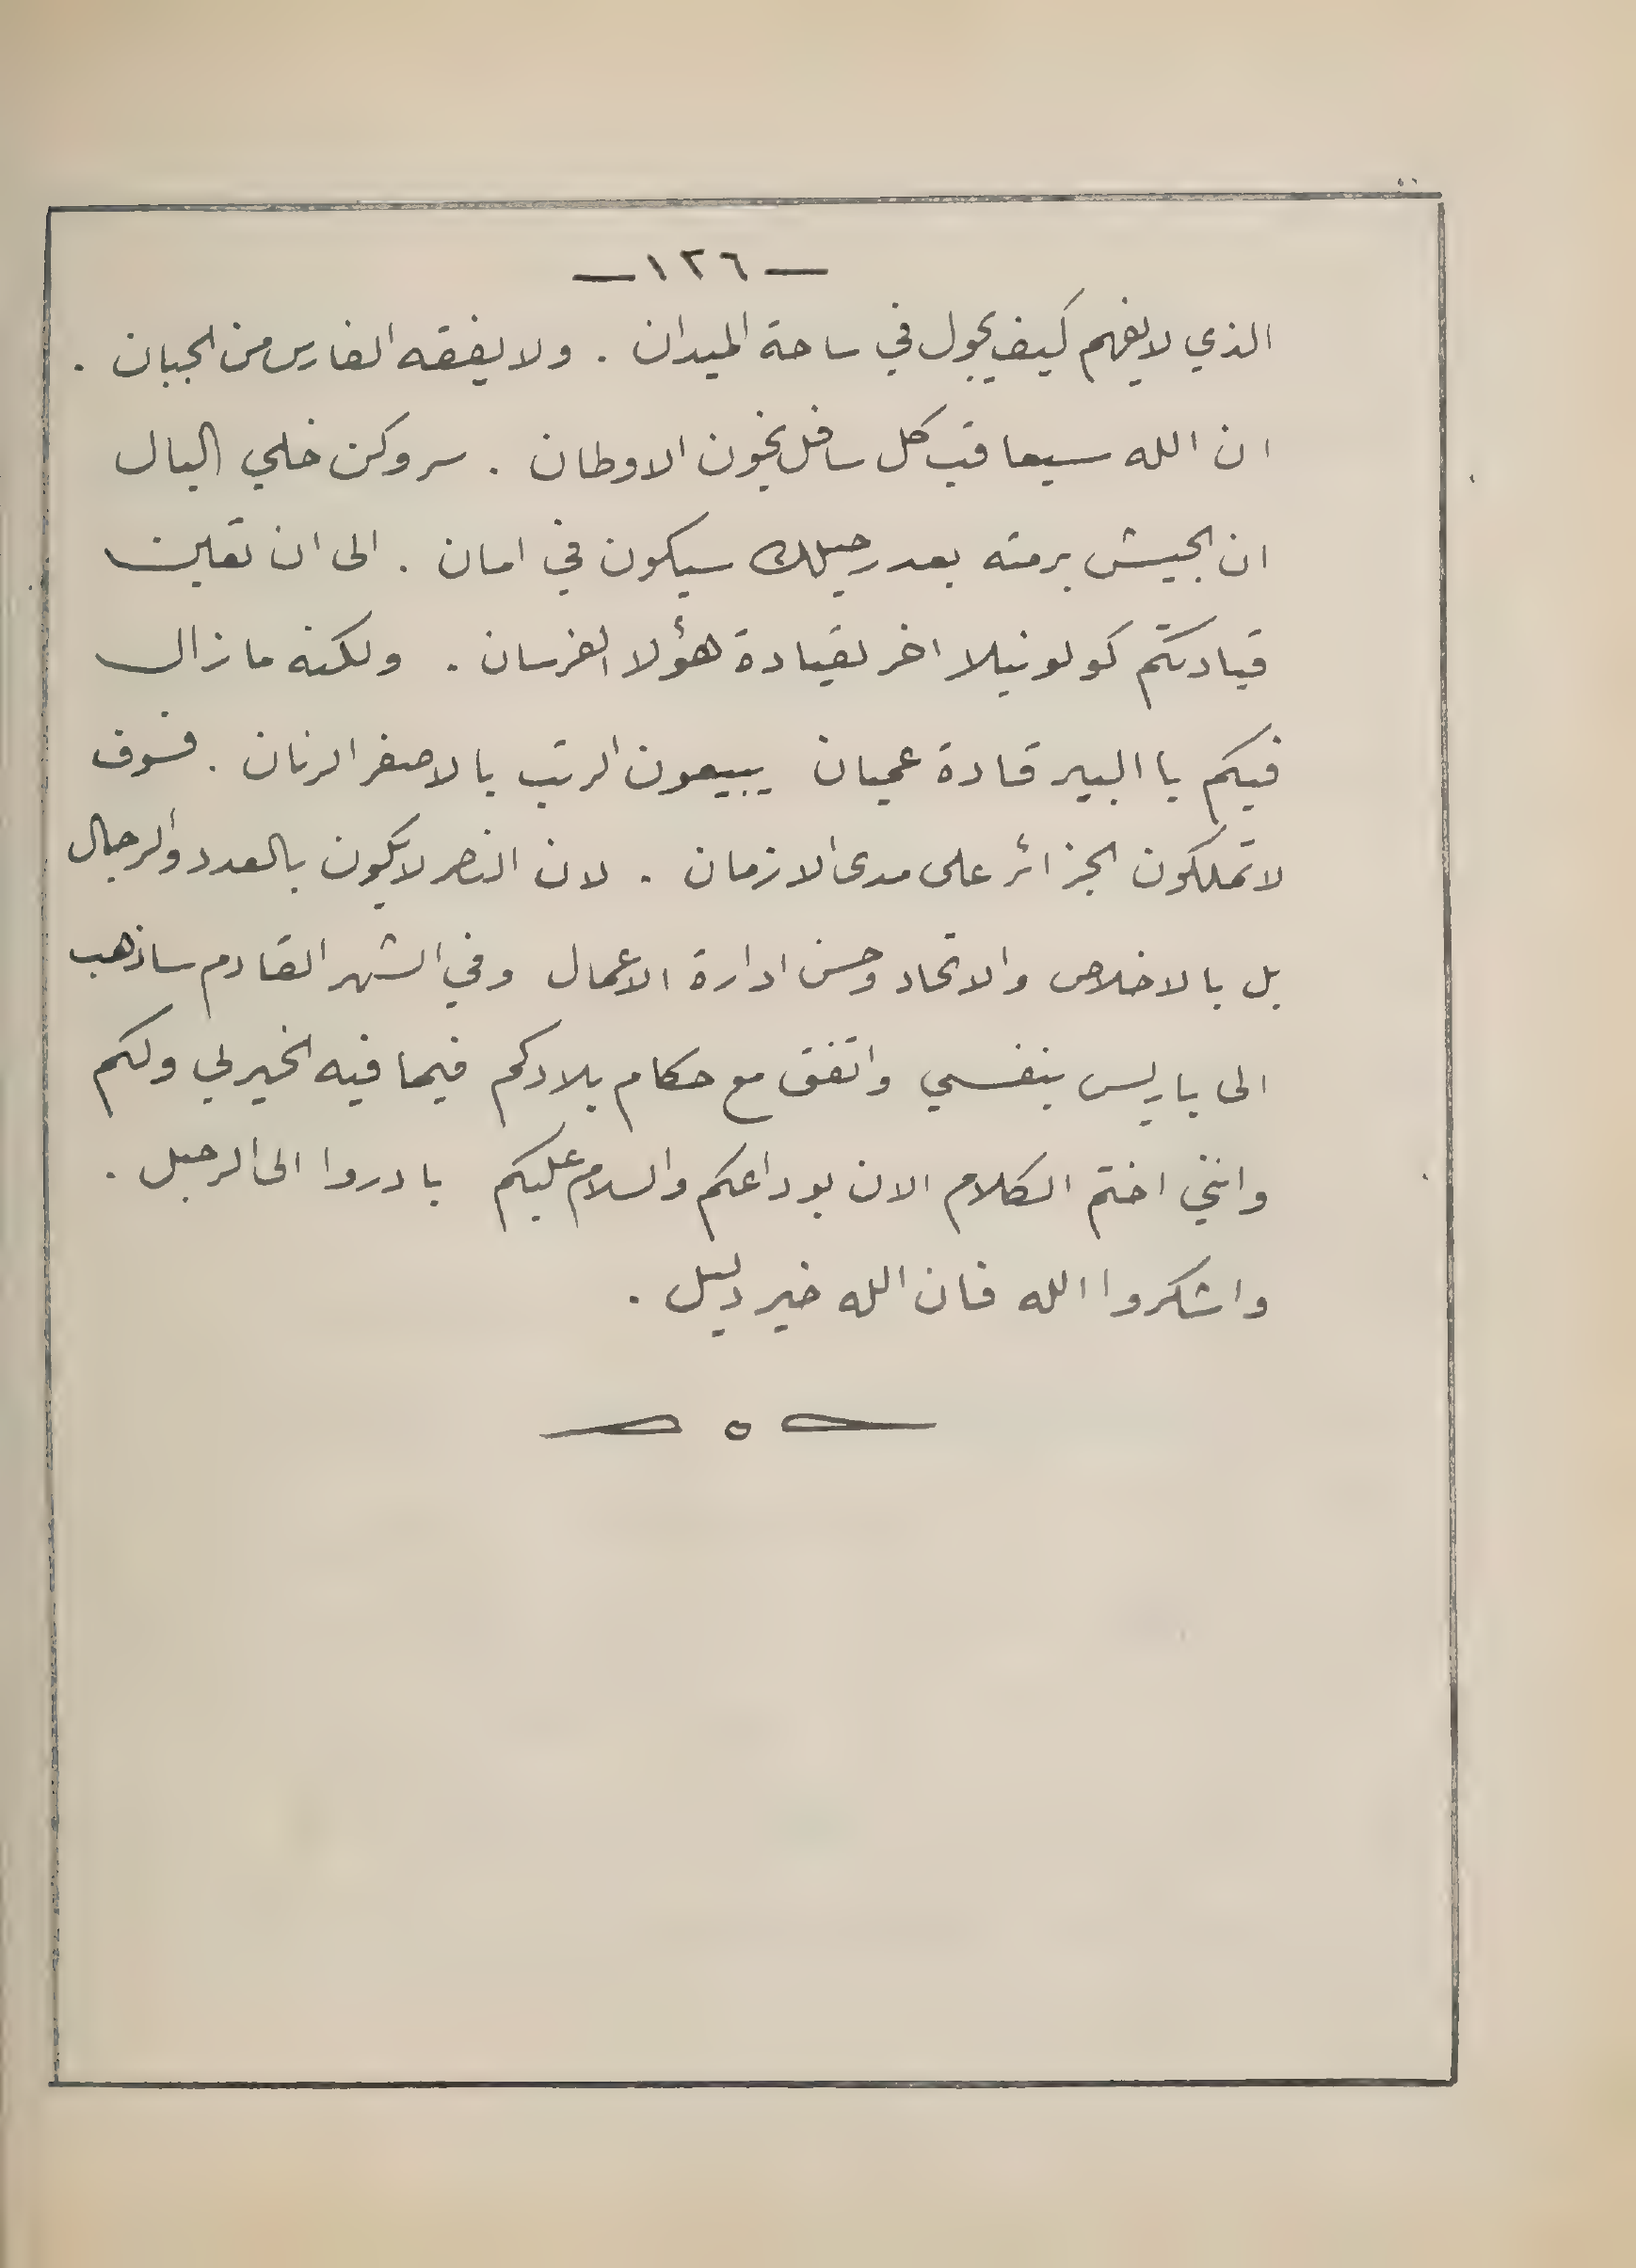 — ١٢٦ —
الذي لا يفهم كيف يجول في ساحة الميدان . ولا يفقه الفارس من الجبان .
ان الله سيعاقب كل سافل يخون الاوطان . سر وكن خلي البال
ان الجيش برمته بعد رحيلك سيكون في امان . الى ان تعين
قيادتكم كولونيلا اخر لقيادة هؤلا الفرسان . ولكنه مازال
فيكم يا البير قادة عميان يبيعون الرتب بالاصفر الرنان . فسوف
لا تملكون الجزائر على مدى الازمان . لان النصر لا يكون بالعدد والرجال
بل بالاخلاص والاتحاد وحسن ادارة الاعمال وفي الشهر القادم ساذهب
الى باريس بنفسي واتفق مع حكام بلادكم فيما فيه الخير لي ولكم
وانني اختم الكلام الان بوداعكم والسلام عليكم بادروا الى الرحيل .
واشكروا الله فان الله خير دليل .